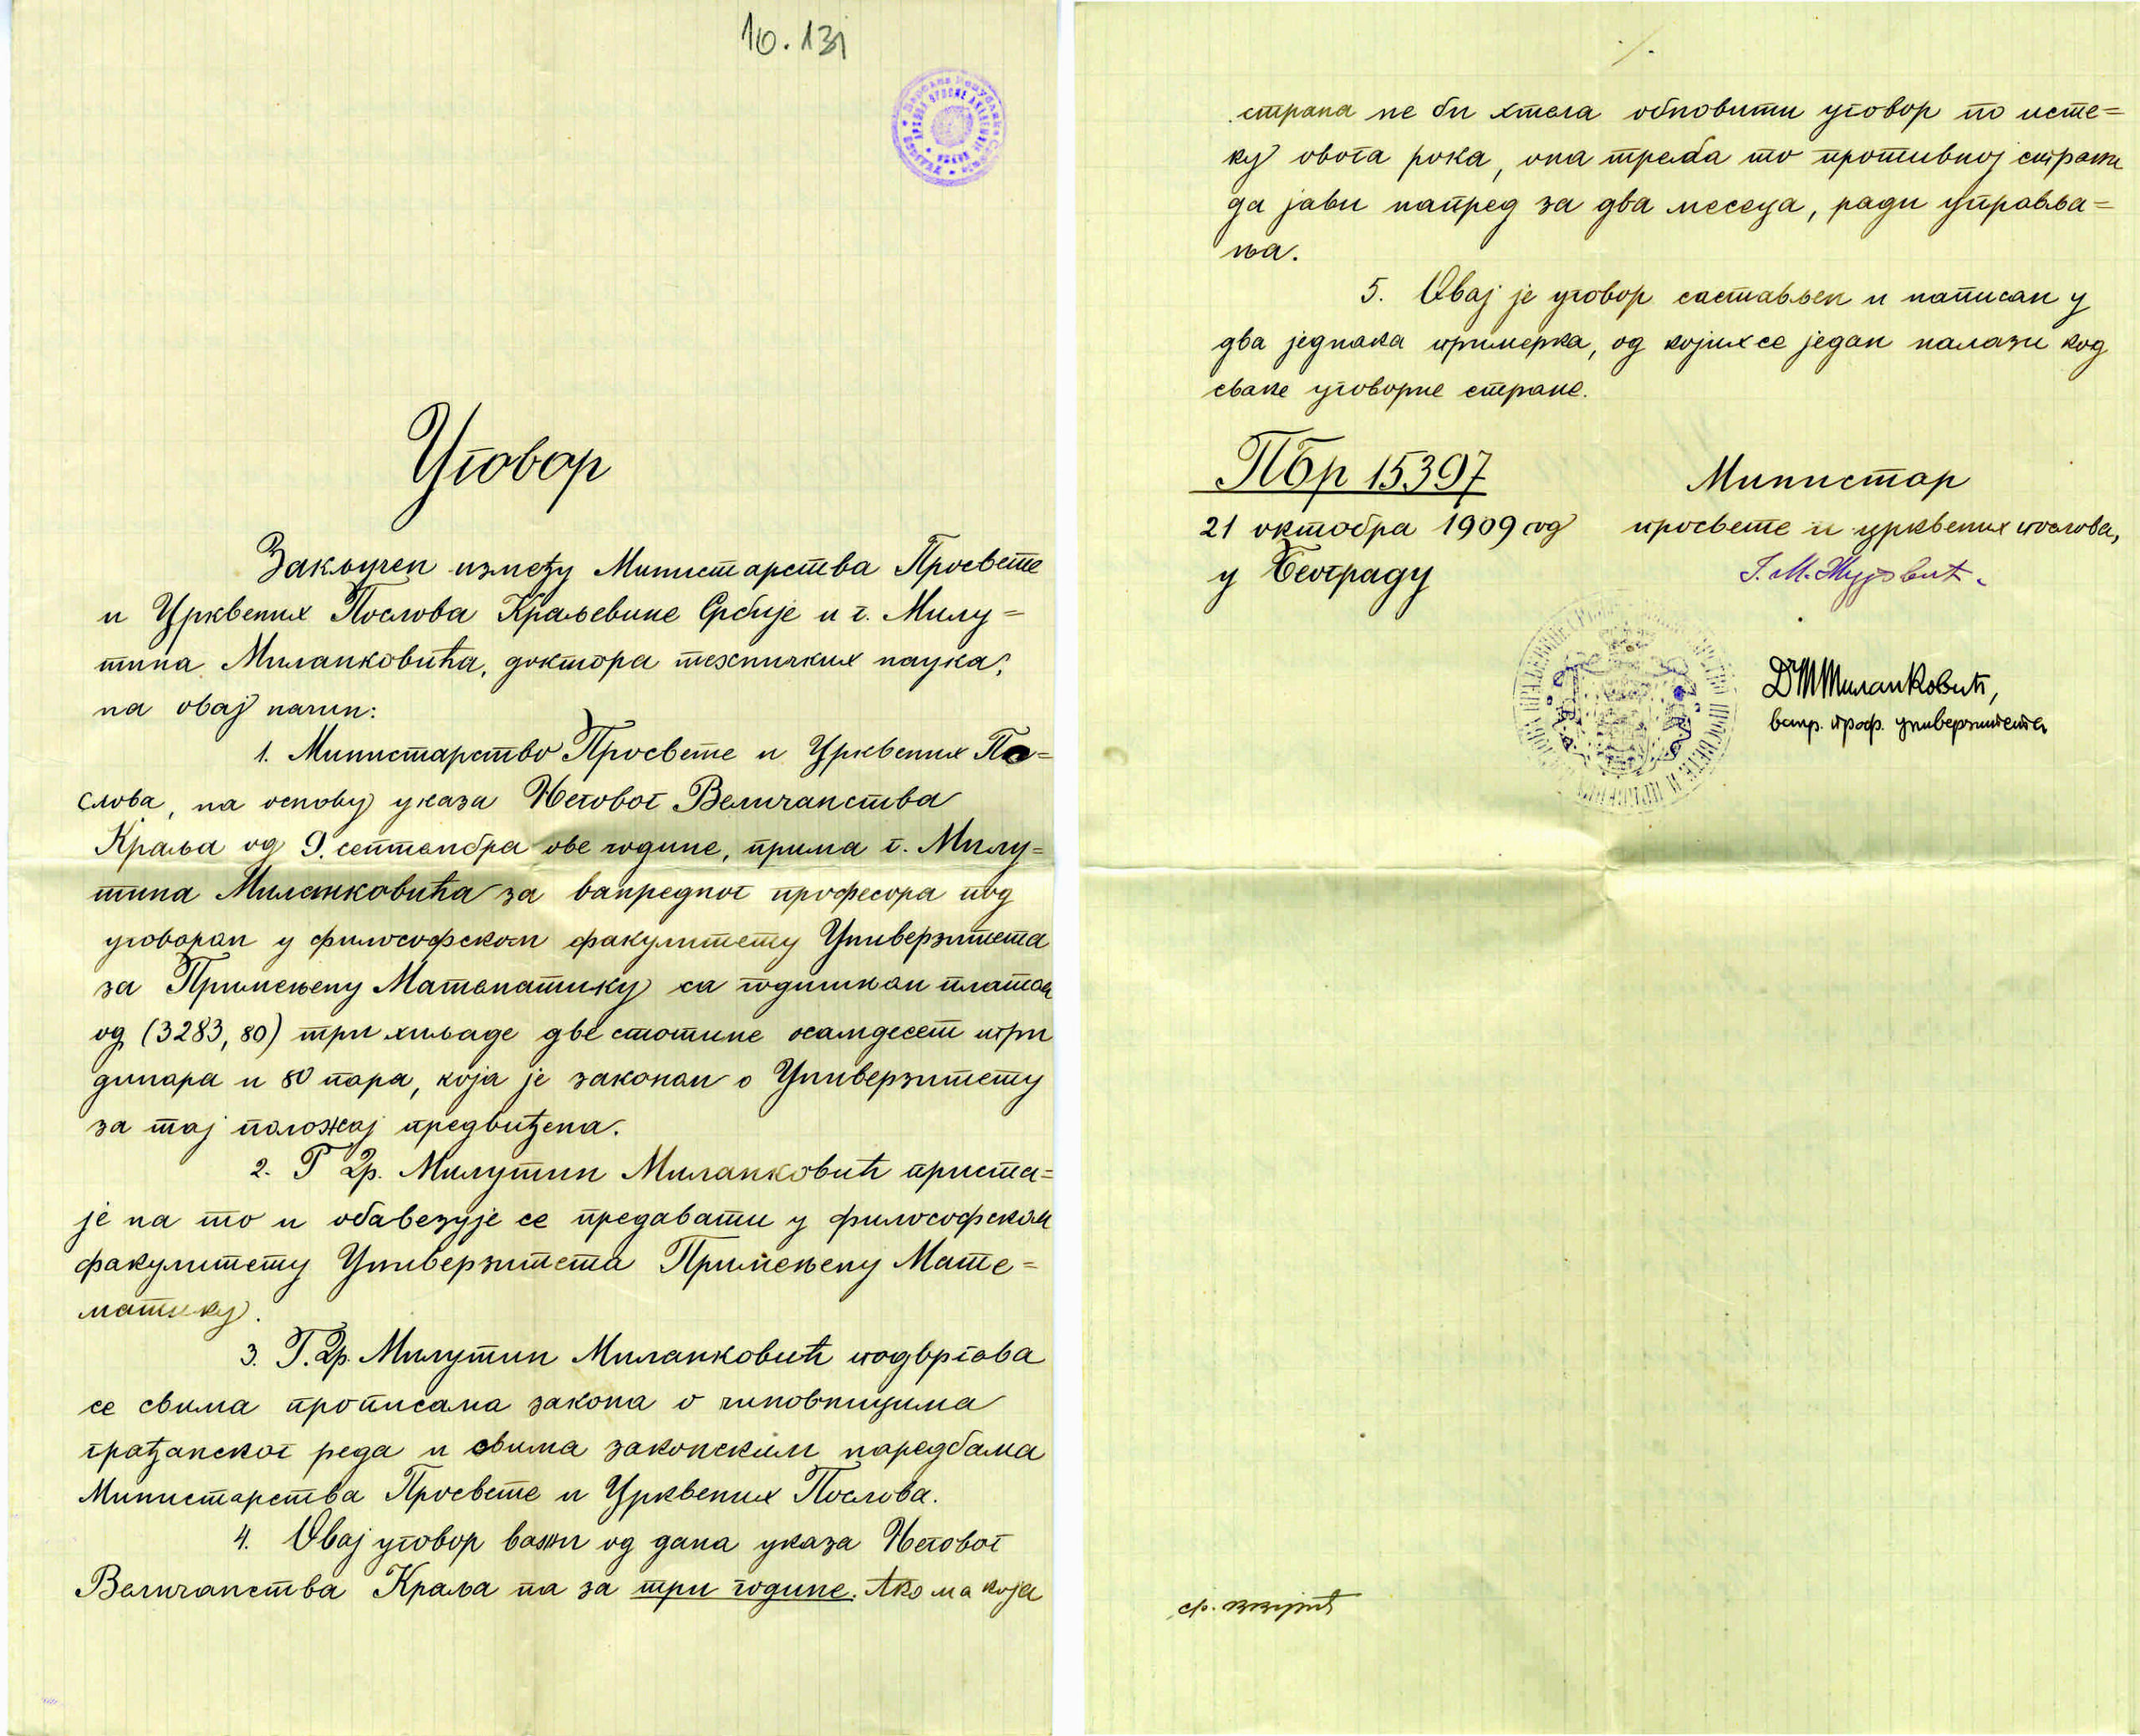 10.131
Уговор
Закључен између Министарства Просвете
и Црквених Послова Краљевине Србије и г. Милу=
тина Миланковића, доктора техничких наука,
на овај начин:
1. Министарство Просвете и Црквених По=
слова, на основу указа Његовог Величанства
Краља од 9. септембра ове године, прима г. Милу=
тина Миланковића за ванредног професора под
уговором у философском факултету Универзитета
за Примењену Математику са годишњом платом
од (3283,80) три хиљаде две стотине осамдесет три
динара и 80 пара, која је законом о Универзитету
за тај положај предвиђена.
2. Г Др. Милутин Миланковић приста=
је на то и обавезује се предавати у философском
факултету Универзитета Примењену Мате=
матику.
3. Г. Др. Милутин Миланковић подвргава
се свима прописама закона о чиновницима
грађанског реда и свима законским наредбама
Министарства Просвете и Црквених Послова.
4. Овај уговор важи од дана указа Његовог
Величанства Краља па за три године. Ако ма која
./.
страна не би хтела обновити уговор по исте=
ку овога рока, она треба то противној страни
да јави напред за два месеца, ради управља=
ња.
5. Овај је уговор састављен и написан у
два једнака примерка, од којих се један налази код
сваке уговорне стране.
ПБр 15397
21 октобра 1909 год
у Београду
Министар
просвете и црквених послова,
Ј. М. Жујовић
Dr М Миланковић,
ванр. проф. универзитета